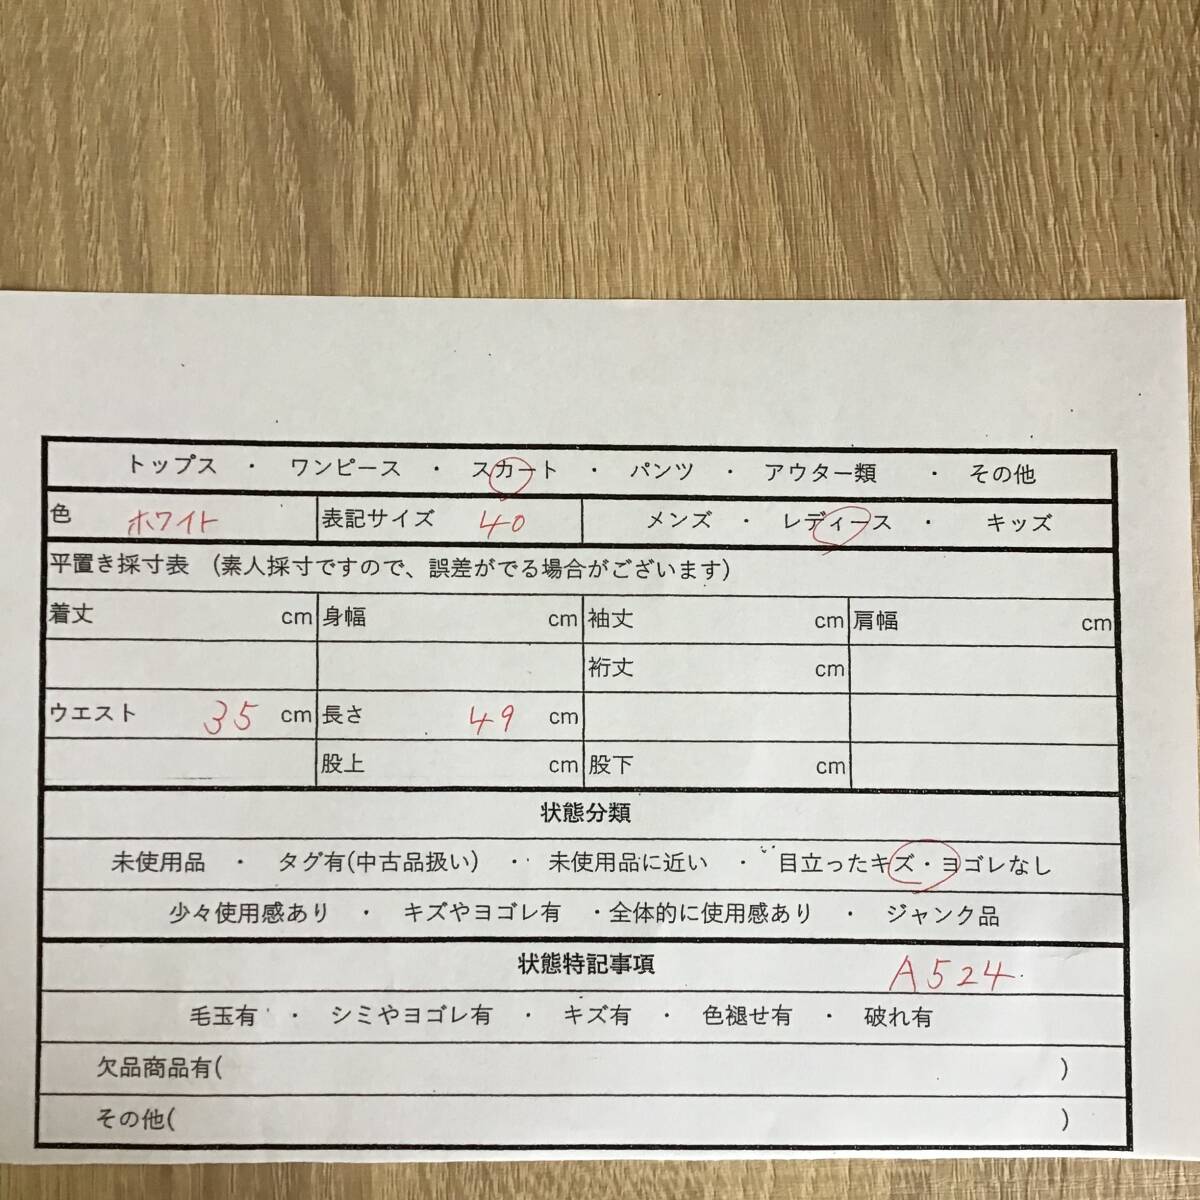 トップス ・ ワンピース ・ スカート ・ パンツ ・ アウター類 ・ その他
色 ホワイト 表記サイズ 40 メンズ ・ レディース ・ キッズ
平置き採寸表 (素人採寸ですので、誤差がでる場合がございます)
着丈 cm 身幅 cm 袖丈 cm 肩幅 cm
裄丈 cm
ウエスト 35 cm 長さ 49 cm
股上 cm 股下 cm
状態分類
未使用品 ・ タグ有(中古品扱い) ・ 未使用品に近い ・ 目立ったキズ・ヨゴレなし
少々使用感あり ・ キズやヨゴレ有 ・全体的に使用感あり ・ ジャンク品
状態特記事項 A524
毛玉有 ・ シミやヨゴレ有 ・ キズ有 ・ 色褪せ有 ・ 破れ有
欠品商品有( )
その他( )